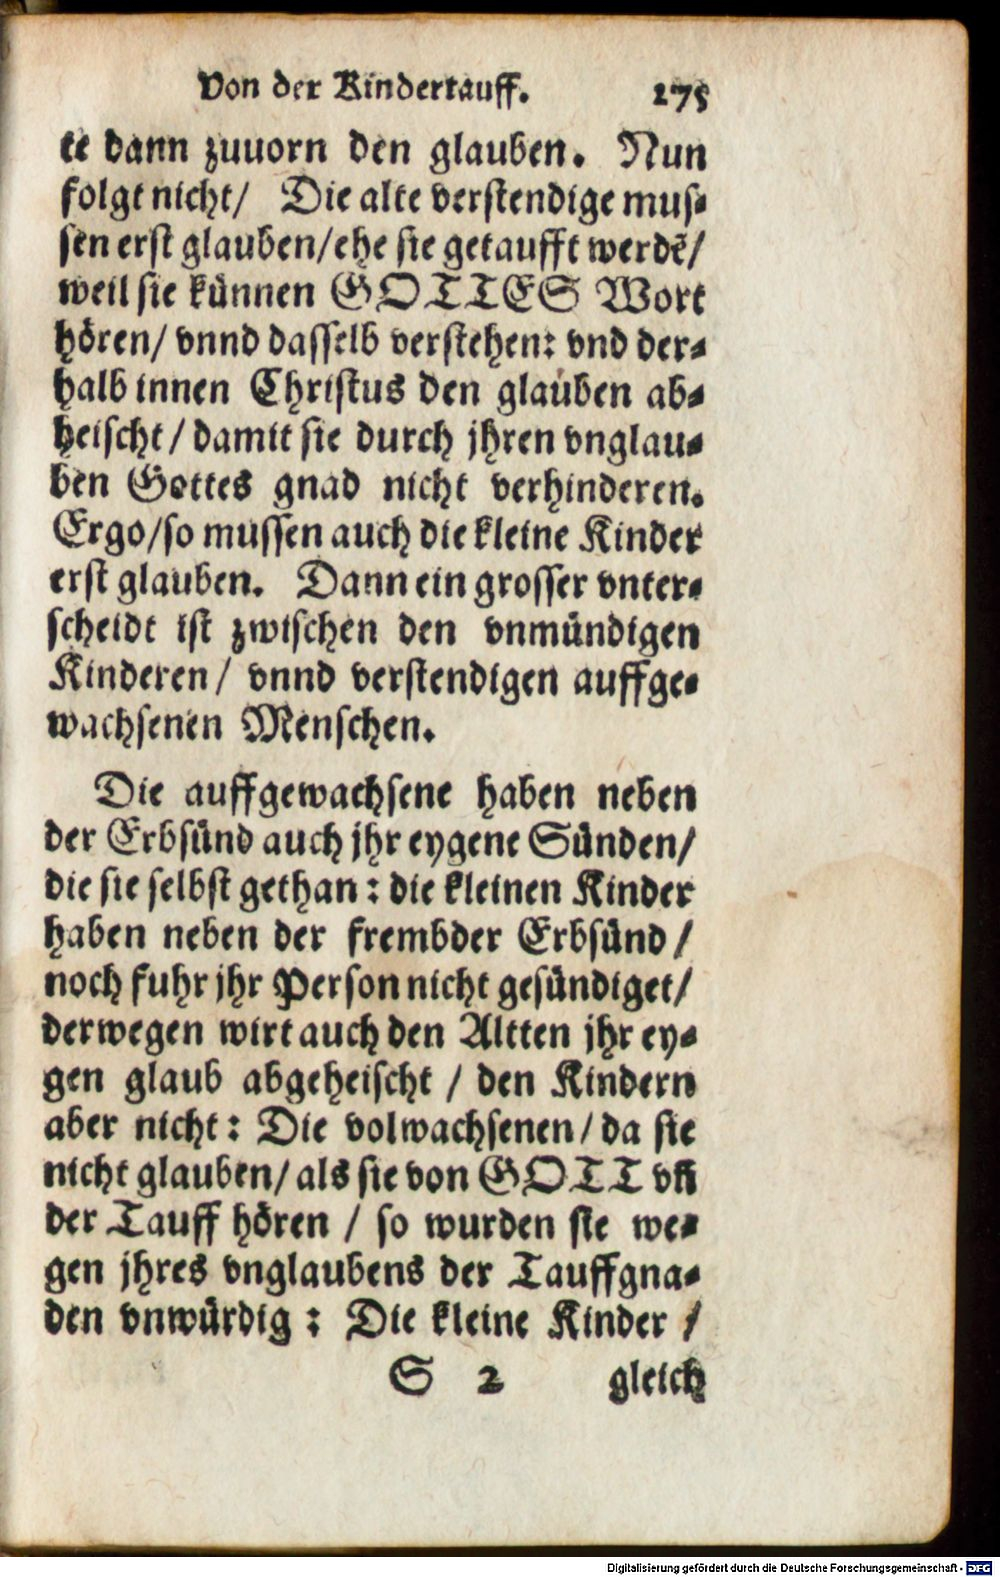 Von der Kindertauff. 275
te dann zuuorn den glauben. Nun
folgt nicht/ Die alte verstendige mus-
sen erst glauben/ehe sie getaufft werdẽ/
weil sie künnen GOTTES Wort
hören/ vnnd dasselb verstehen: vnd der-
halb innen Christus den glauben ab-
heischt/ damit sie durch jhren vnglau-
ben Gottes gnad nicht verhinderen.
Ergo/so mussen auch die kleine Kinder
erst glauben. Dann ein grosser vnter-
scheidt ist zwischen den vnmündigen
Kinderen/ vnnd verstendigen auffge-
wachsenen Menschen.
Die auffgewachsene haben neben
der Erbsünd auch jhr eygene Sünden/
die sie selbst gethan: die kleinen Kinder
haben neben der frembder Erbsünd/
noch fuhr jhr Person nicht gesündiget/
derwegen wirt auch den Altten jhr ey-
gen glaub abgeheischt/ den Kindern
aber nicht: Die volwachsenen/ da sie
nicht glauben/ als sie von GOTT vñ
der Tauff hören/ so wurden sie we-
gen jhres vnglaubens der Tauffgna-
den vnwürdig: Die kleine Kinder/
S 2 gleich
Digitalisierung gefördert durch die Deutsche Forschungsgemeinschaft - DFG